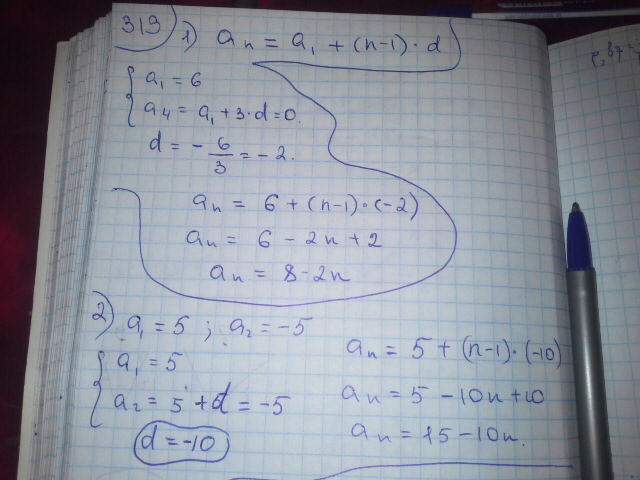 319
1) aₙ = a₁ + (n-1)·d
a₁ = 6
a₄ = a₁ + 3·d = 0.
d = - 6/3 = -2.
aₙ = 6 + (n-1)·(-2)
aₙ = 6 - 2n + 2
aₙ = 8 - 2n
2) a₁ = 5 ; a₂ = -5
a₁ = 5
a₂ = 5 + d = -5
d = -10
aₙ = 5 + (n-1)·(-10)
aₙ = 5 - 10n + 10
aₙ = 15 - 10n.